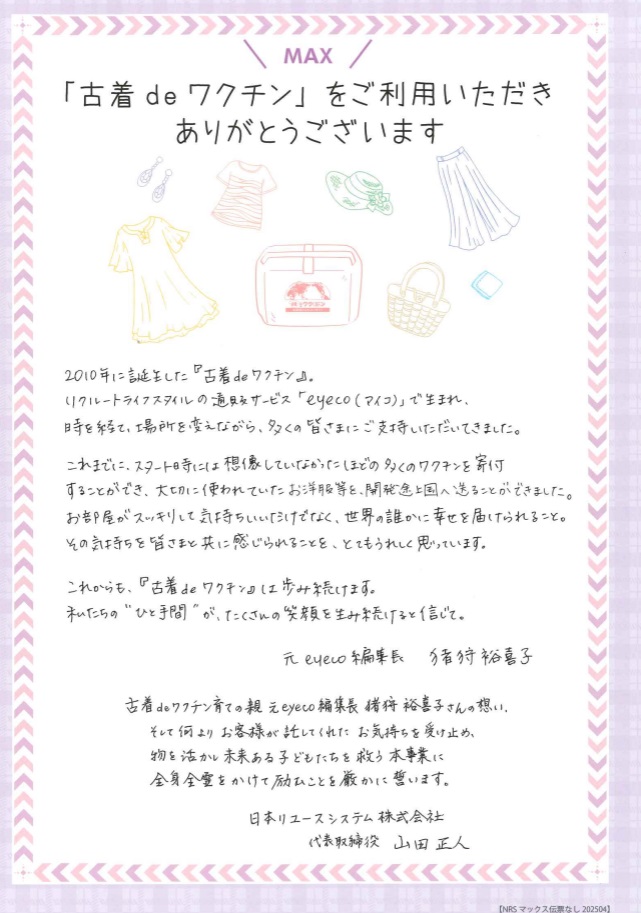 MAX
「古着 de ワクチン」をご利用いただき
ありがとうございます
古着deワクチン
2010年に誕生した『古着deワクチン』。
リクルートライフスタイルの通販サービス「eyeco(アイコ)」で生まれ、
時を経て、場所を変えながら、多くの皆さまにご支持いただいてきました。
これまでに、スタート時には想像していなかったほどの多くのワクチンを寄付
することができ、大切に使われていたお洋服等を、開発途上国へ送ることができました。
お部屋がスッキリして気持ちいいだけでなく、世界の誰かに幸せを届けられること。
その気持ちを皆さまと共に感じられることを、とてもうれしく思っています。
これからも、『古着deワクチン』は歩み続けます。
私たちの"ひと手間"が、たくさんの笑顔を生み続けると信じて。
元 eyeco編集長 猪狩裕喜子
古着deワクチン育ての親 元eyeco編集長 猪狩 裕喜子さんの想い、
そして何より お客様が託してくれた お気持ちを受け止め、
物を活かし未来ある子どもたちを救う本事業に
全身全霊をかけて励むことを厳かに誓います。
日本リユースシステム株式会社
代表取締役 山田 正人
【NRS マックス伝票なし 202504】